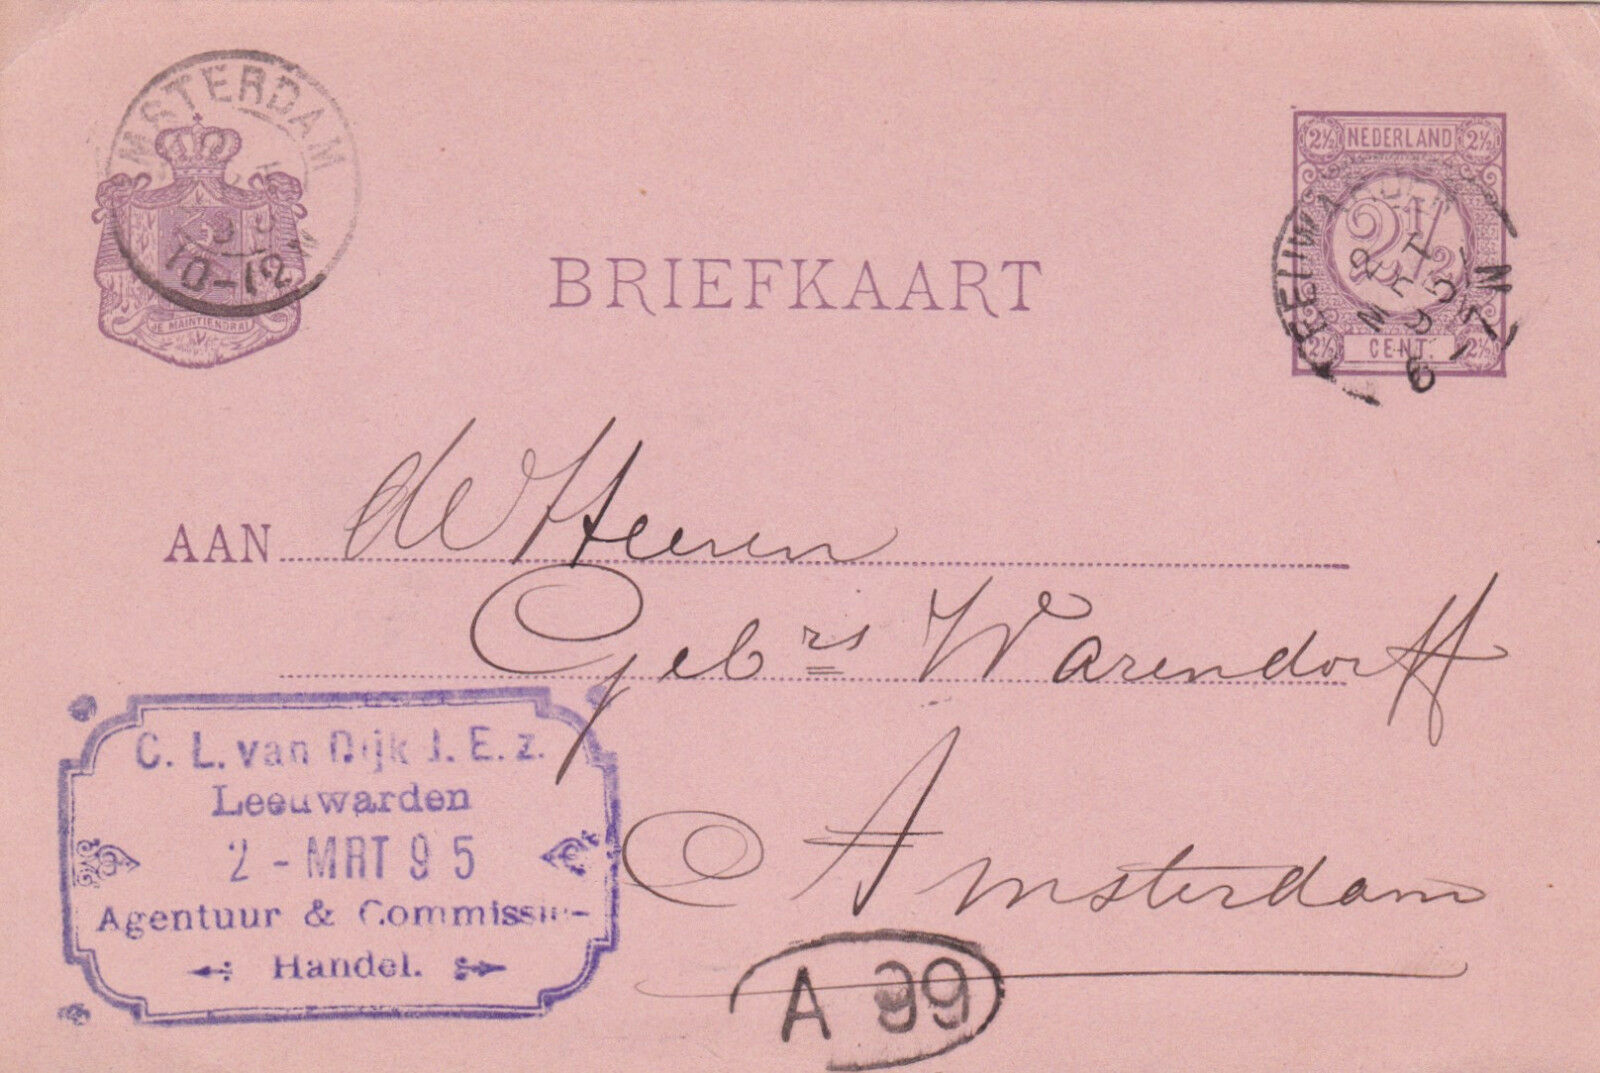 AMSTERDAM
10-12
JE MAINTIENDRAI
BRIEFKAART
2½ NEDERLAND 2½
2½
2½ CENT. 2½
LEEUWARDEN
2 MRT 95
6-7N
AAN de Heeren
Gebrs Warendorff
Amsterdam
C. L. van Dijk J. E. z.
Leeuwarden
2 - MRT 95
Agentuur & Commissie-
Handel.
A 99